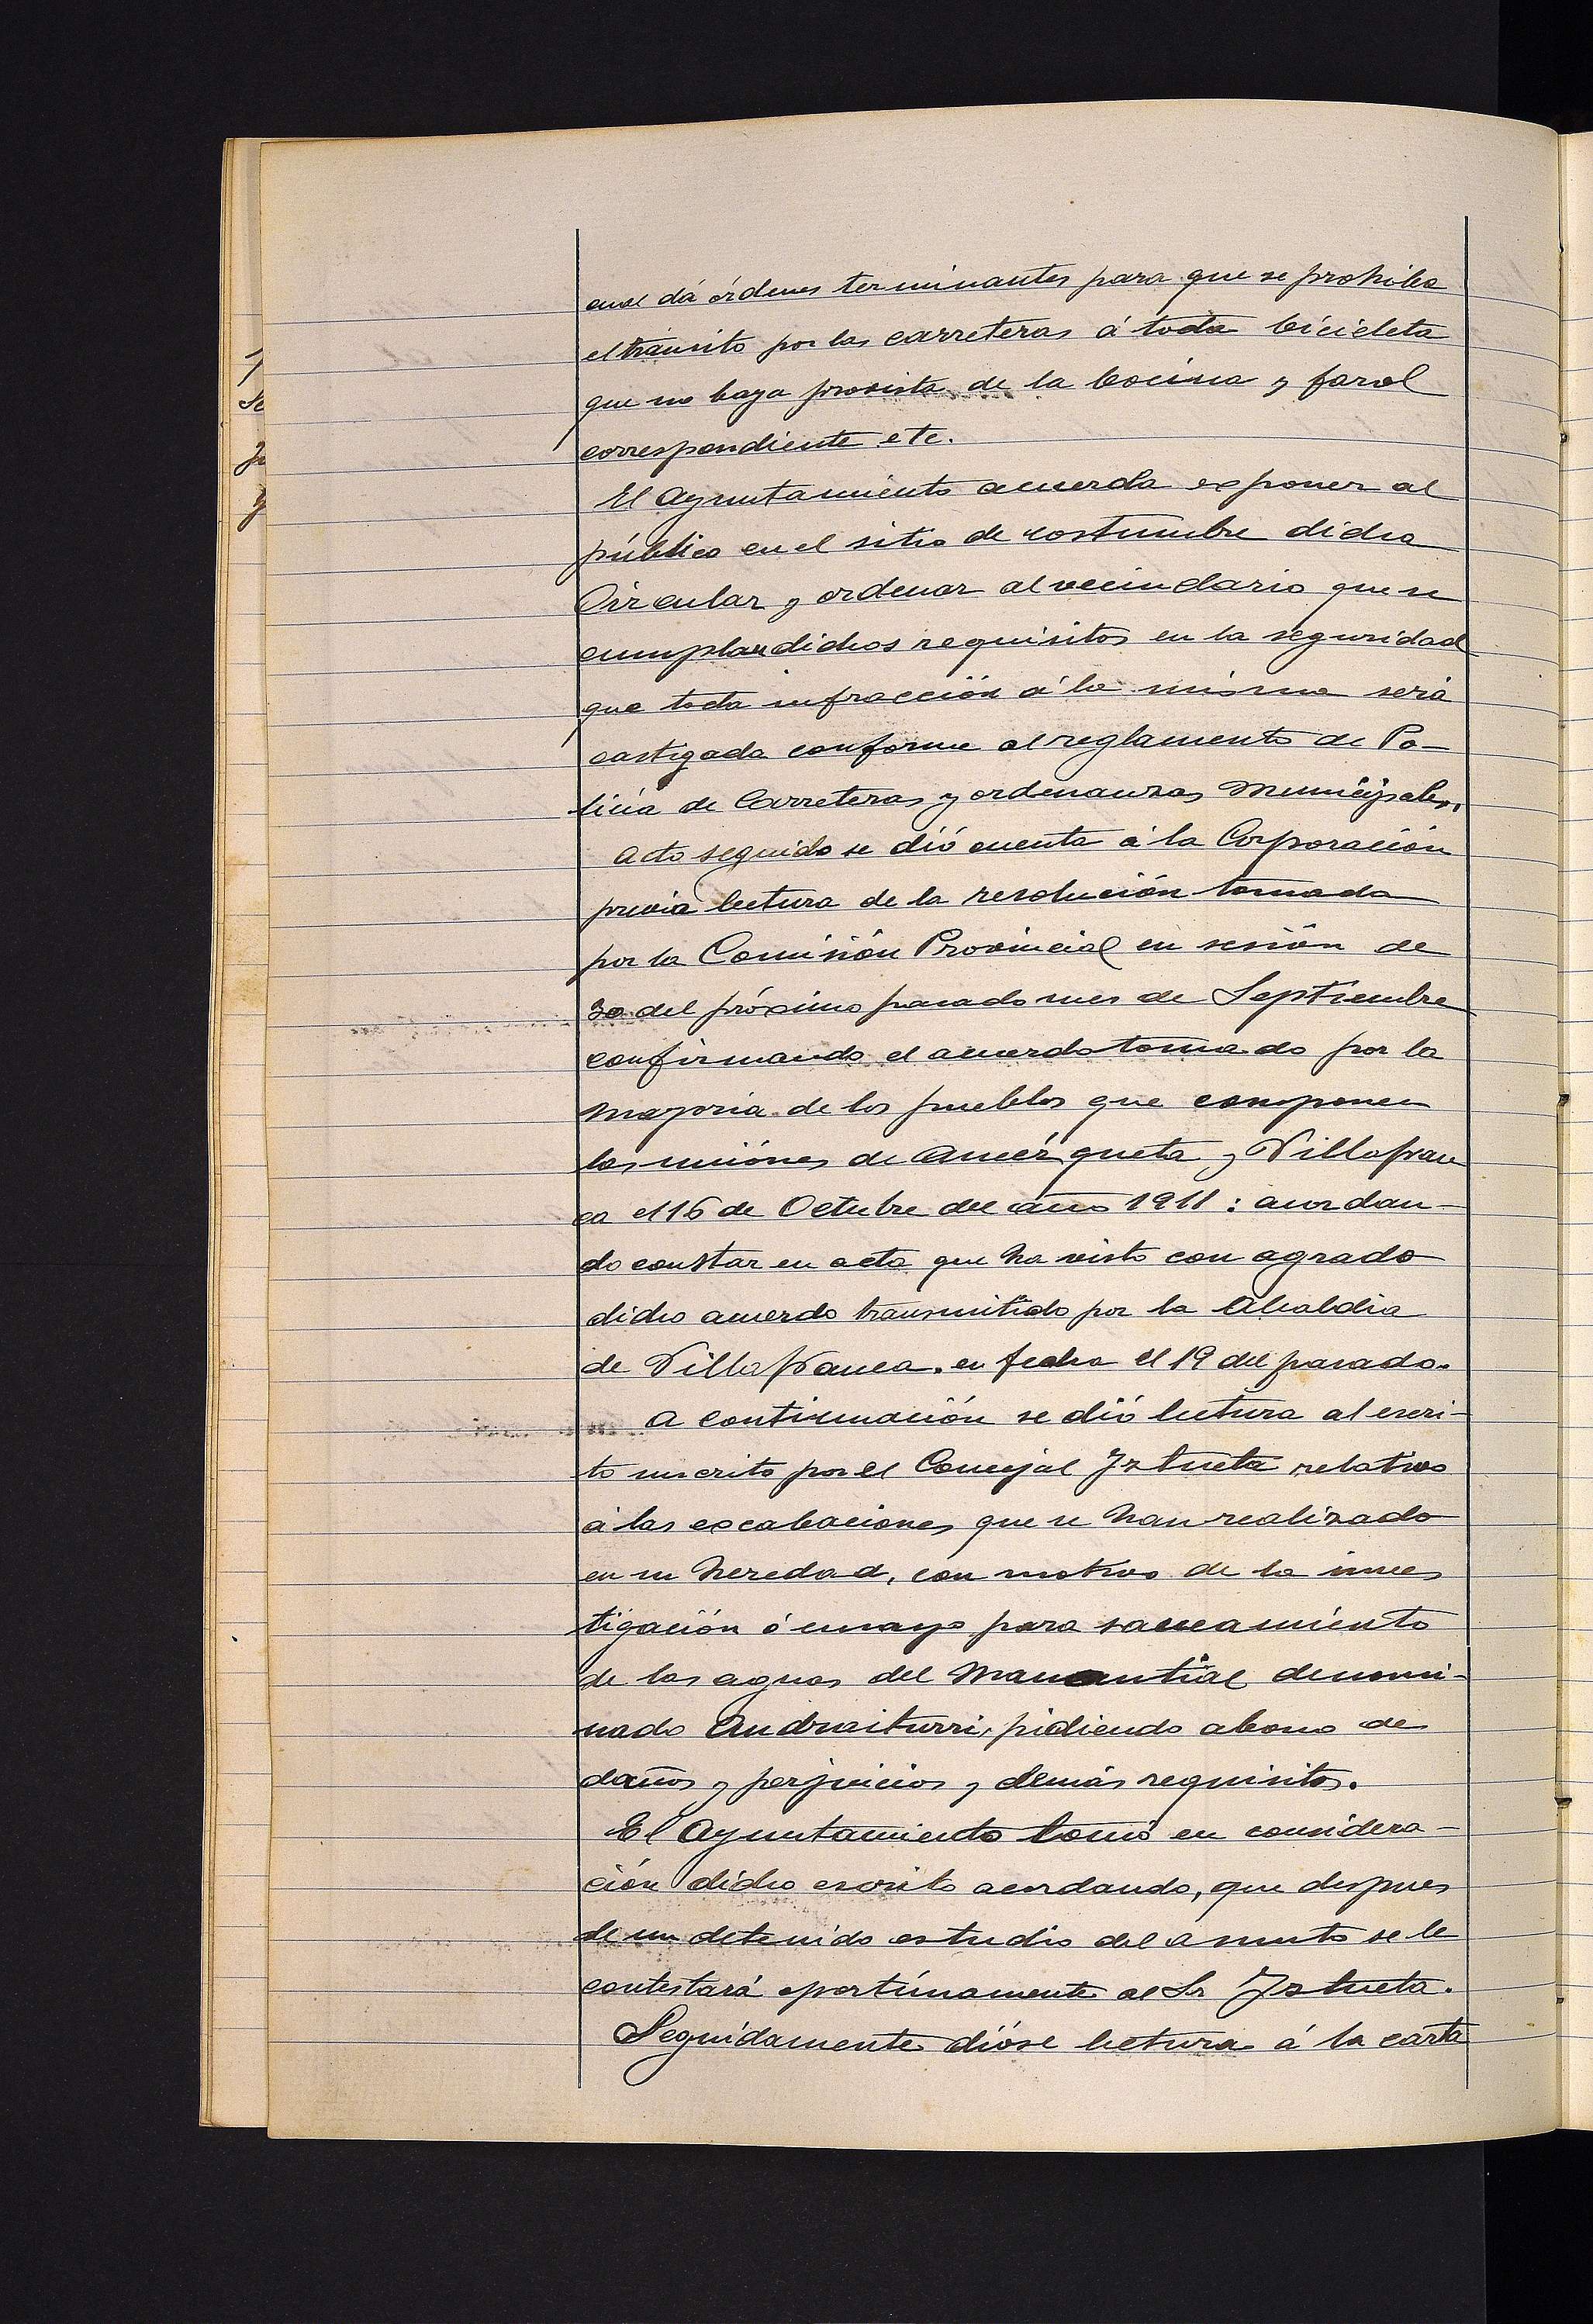 cual dá órdenes terminantes para que se prohiba
el tránsito por las carreteras á toda bicicleta
que no baya provista de la bocina y farol
correspondiente etc.
El Ayuntamiento acuerda exponer al
público en el sitio de costumbre dicha
Circular y ordenar al vecindario que se
cumplan dichos requisitos en la seguridad
que toda infracción á la misma será
castigada conforme al reglamento de Po-
licia de Carreteras y ordenanzas Municipales.
Acto seguido se dió cuenta á la Corporación
previa lectura de la resolución tomada
por la Comisión Provincial en sesión de
30 del próximo pasado mes de Septiembre
confirmando el acuerdo tomado por la
mayoria de los pueblos que componen
las uniónes de Amézqueta y Villafran
ca el 16 de Octubre del año 1911: acordan-
do constar en acta que ha visto con agrado
dicho acuerdo transmitido por la Alcaldia
de Villafranca. en fecha el 19 del pasado.
A continuación se dió lectura al escri-
to suscrito por el Concejal Iztueta relativo
á las excabaciones que se han realizado
en su heredad, con motivo de la inves
tigación ó ensayo para saneamiento
de las aguas del Manantial denomi-
nado Andraiturri, pidiendo abono de
daños y perjuicios y demás requisitos.
El Ayuntamiento tomó en considera-
ción dicho escrito acordando, que despues
de un detenido estudio del asunto se le
contestará oportúnamente al Sr Iztueta.
Seguidamente dióse lectura á la carta